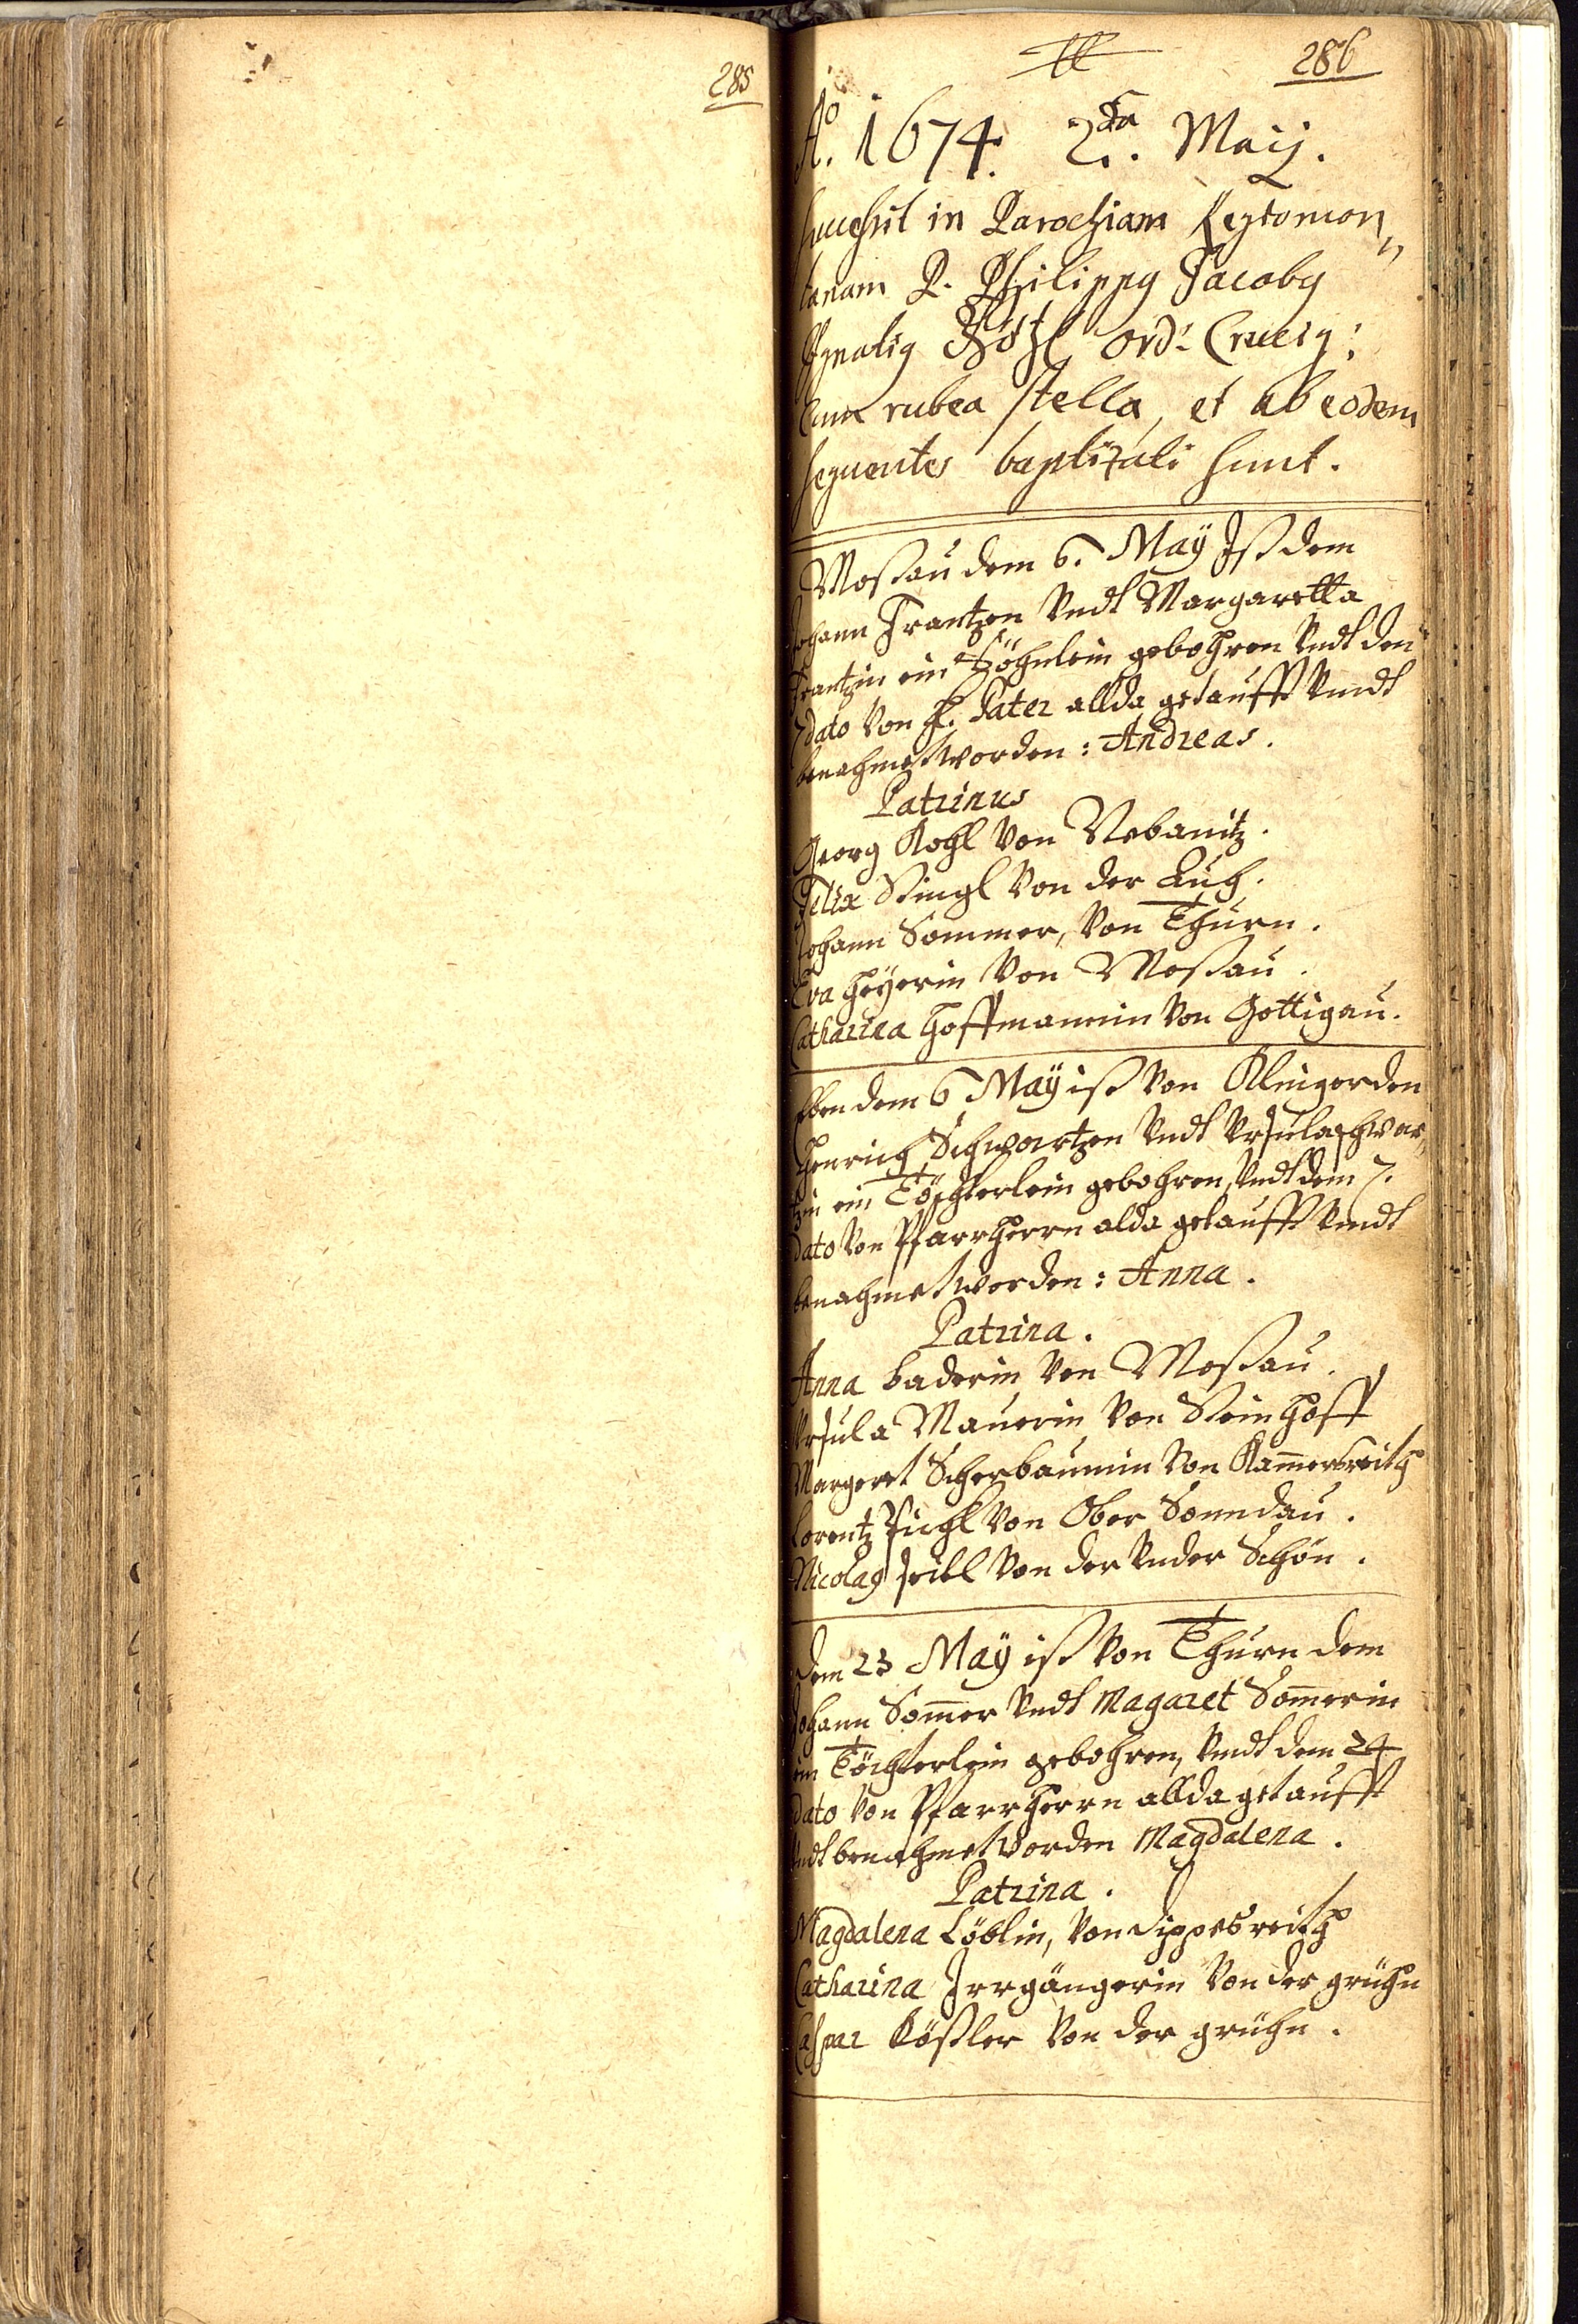 285
286
Ao. 1674. 2da. Maij.
succesßit in Parochiam Keztomon„
tanam P. Philippg Jacobg
Ignatig Hötzl ord: Crucig:
Cum rubea stella, et ab eodem
sequentes baptizati sunt.
Moßau dem 6. Maÿ Ist dem
Johann Frantzen Vndt Margaretta
Frantzin ein Söhnlein gebohren Vndt den
7 dato Von H. Pater allda getaufft Vndt
benahmet worden: Andreas.
Patrinus
Georg Kohl Von Nebanitz.
Felix Stingl Von der Luh.
Johann Sommer, Von Thurn.
Eva Heÿerin Von Moßau.
Catharina Hoffmannin Von Gottigau.
Eben dem 6 Maÿ ist Von Klinger den
Henrich Schwartzen Vndt Vrsula schwar„
tzin ein Töchterlein gebohren, Vndt dem 7.
dato Von Pfarrherrn alda getaufft Vndt
benahmet worden: Anna.
Patrina.
Anna baderin Von Moßau.
Vrsula Maurerin Von Steinhoff
Margeret Scherbaumin Von Kam̄ersreith
Lorentz Fichl Von Ober Sonndau.
Nicolag Zeitl Von der Vnder Schön.
Dem 23 Maÿ ist Von Thurn dem
Johann Som̄er Vndt Magaret Som̄erin
ein Töchterlein gebohren, Vndt dem 24
dato Von Pfarrherrn allda getaufft
Vndt benahmet worden Magdalena.
Patrina.
Magdalena Löblin, Von Dippesreith
Catharina Irrgängerin Von der grühn
Caspar Kößler Von der grühn.